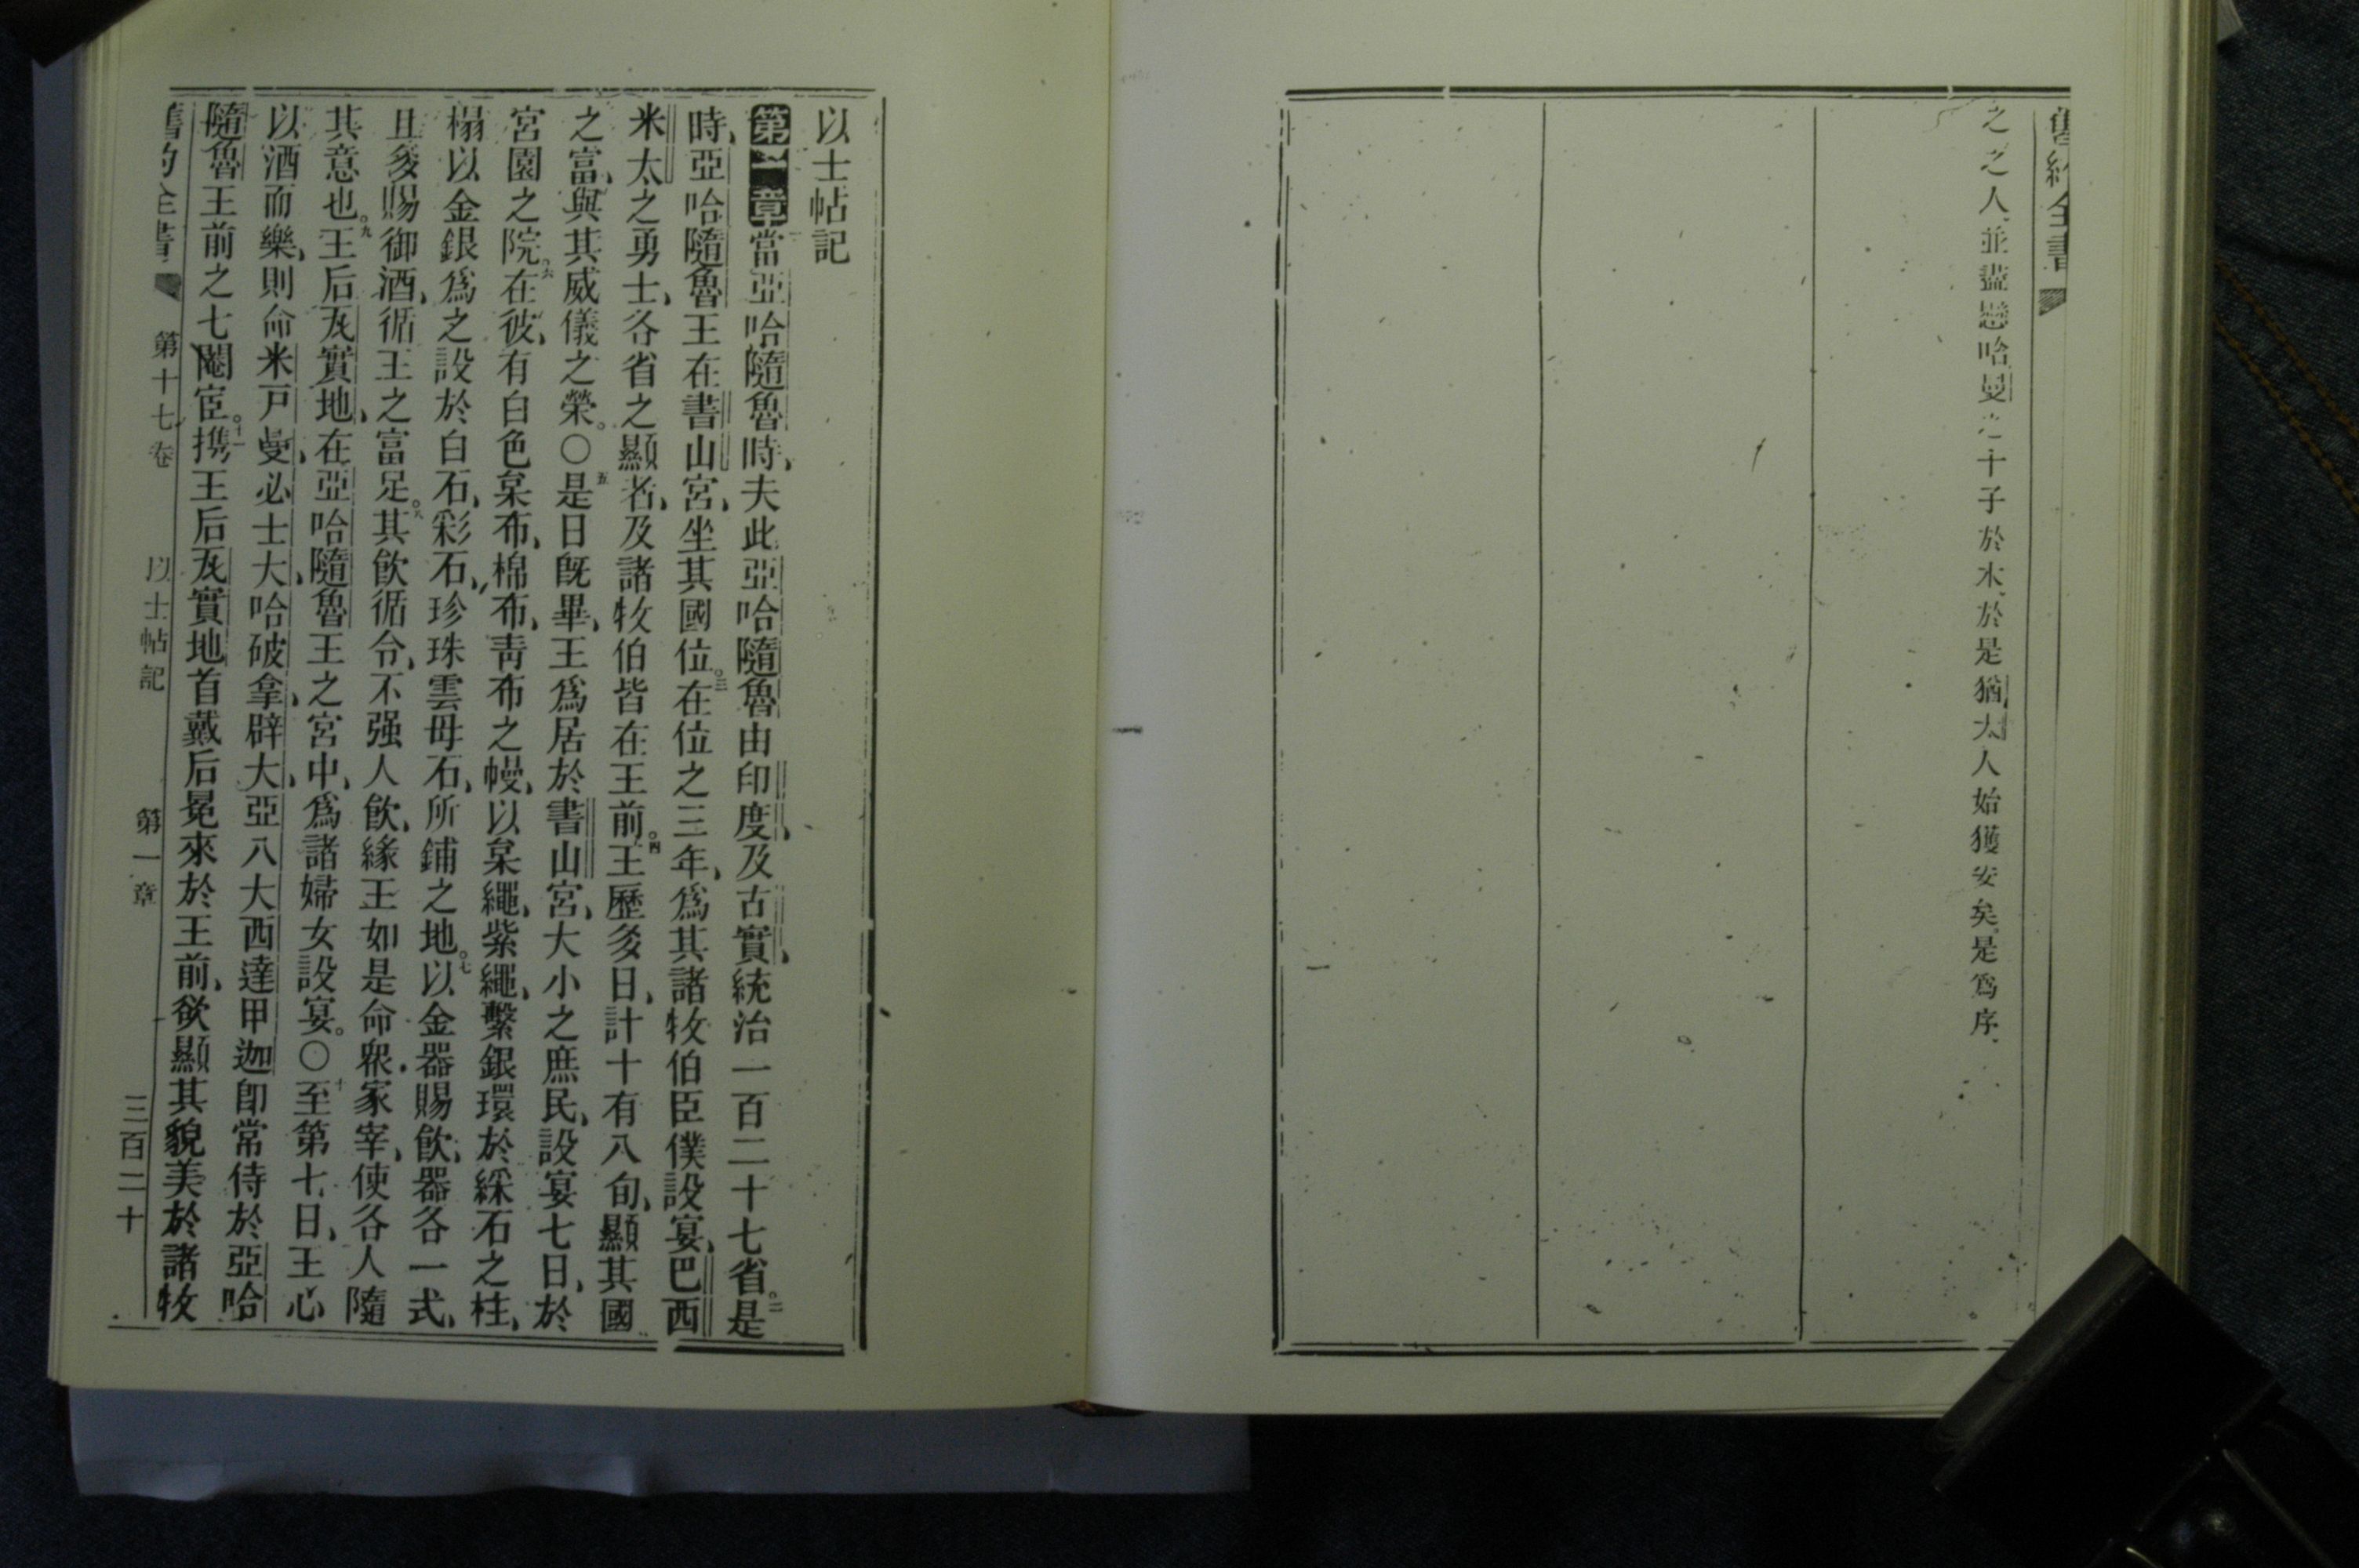 舊約全書
之之人並盡懸哈曼之十子於木於是猶太人始獲安矣是爲序
以士帖記
第一章當亞哈隨魯時、夫此亞哈隨魯由印度、及古實、統治一百二十七省。二是
時、亞哈隨魯王在書山宮、坐其國位。三在位之三年、爲其諸牧伯臣僕設宴、巴西
米太之勇士、各省之顯者、及諸牧伯皆在王前。四王歷多日、計十有八旬、顯其國
之富、與其威儀之榮。〇五是日旣畢、王爲居於書山宮、大小之庶民、設宴七日、於
宮園之院。六在彼、有白色枲布、棉布、青布之幔、以枲繩、紫繩、繫銀環於綵石之柱、
榻以金銀爲之設於白石、彩石、珍珠雲母石、所鋪之地。七以金器賜飲、器各一式、
且多賜御酒、循王之富足。八其飲循令、不强人飲、緣王如是命衆家宰、使各人隨
其意也。九王后瓦實地、在亞哈隨魯王之宮中、爲諸婦女設宴。〇十至第七日、王心
以酒而樂、則命米戶曼、必士大、哈破拿、辟大、亞八大西達甲迦卽常侍於亞哈
隨魯王前之七閹宦。十一携王后瓦實地首戴后冕來於王前、欲顯其貌美於諸牧
舊約全書 第十七卷 以士帖記 第一章 三百二十